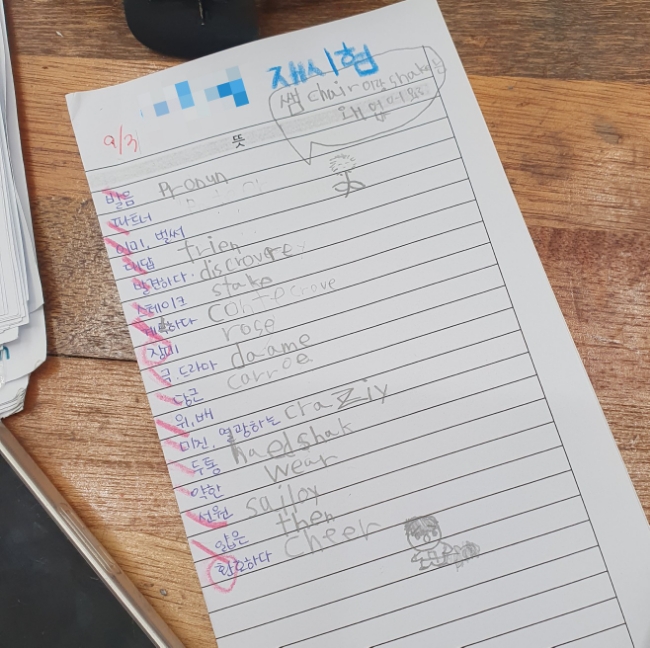 재시험
썸 chair이랑 shake는
왜 없어요
9/3
뜻
발음 pronun
파트너
이미, 벌써
대답 frien
발견하다 discrovere
스테이크 stake
계속하다 contecrove
장미 rose
극, 드라마 daame
당근 carroe
위, 배
미친, 열광하는 craziy
두통 haedshak
약한 wear
선원 sailoy
얇은 then
환호하다 cheer